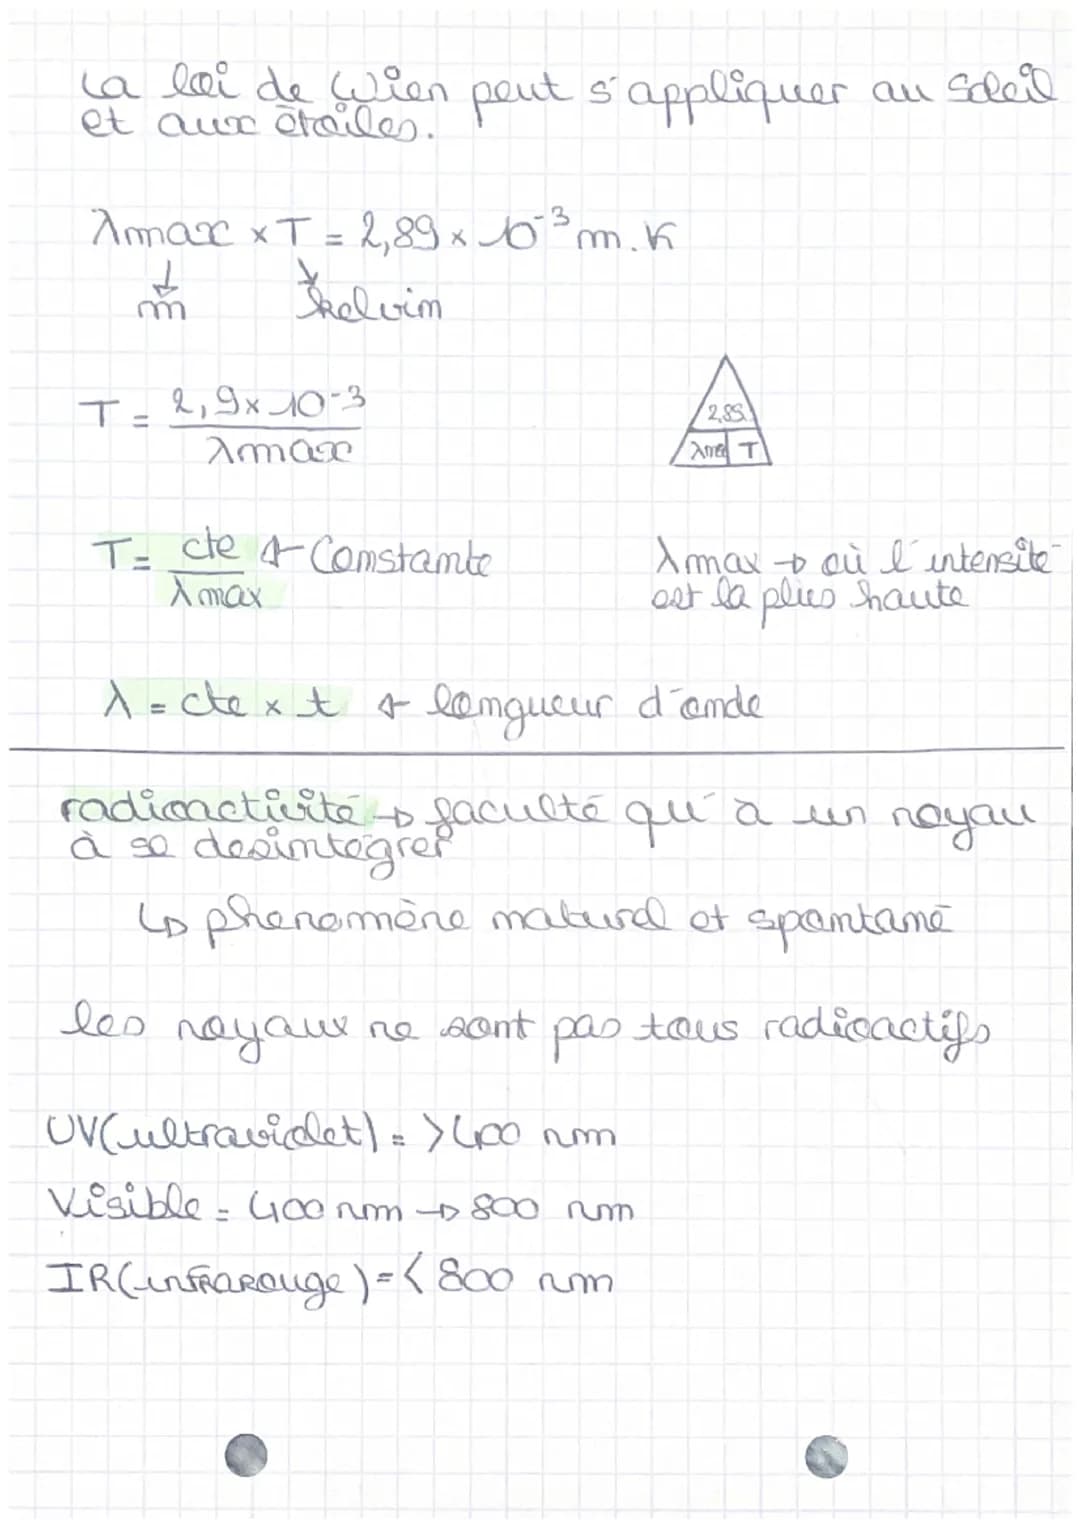 La loi de Wien peut s'appliquer au Soleil
et aux étoiles.
λmax × T = 2,89 × 10⁻³ m.K
m kelvin
T = 2,9 × 10-3
λmax
2,89
λmax T
T = cte ← Constante
λmax
λmax → où l'intensité
est la plus haute
λ = cte × t ← longueur d'onde
radioactivité → faculté qu'a un noyau
à se desintégrer
↳ phenomène naturel et spontané
les noyaux ne sont pas tous radioactifs
UV(ultraviolet) = >400 nm
Visible = 400 nm → 800 nm
IR(infrarouge) = < 800 nm